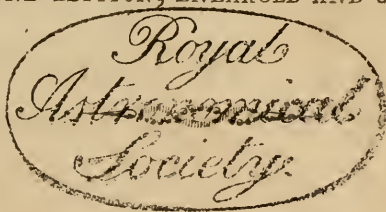 EDITION, ENLARGED AND
Royal
Astronomical
Society.